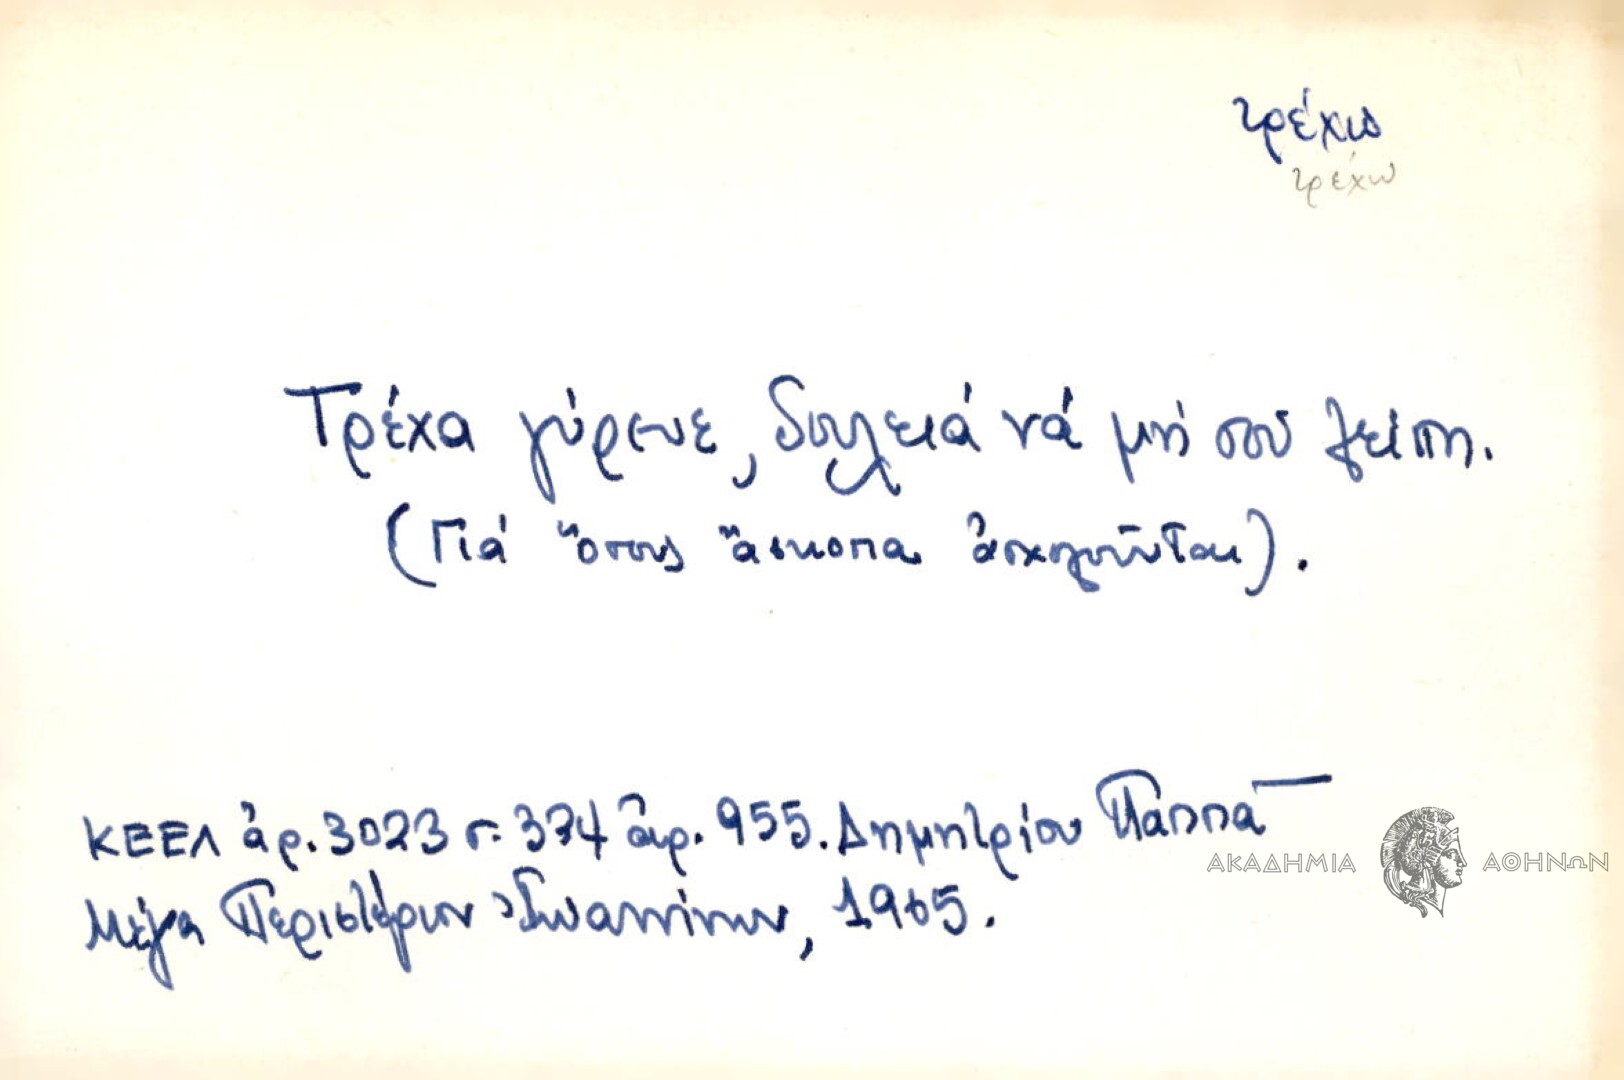 τρέχω
τρέχω
Τρέχα γύρευε, δουλειά νά μή σοῦ λείπη.
(Γιά ὅσους ἄσκοπα ἀσχολοῦνται).
ΚΕΕΛ ἀρ. 3023 σ. 374 ἀρ. 955. Δημητρίου Παππᾶ
Μέγα Περιστέριον Ἰωαννίνων, 1965.
ΑΚΑΔΗΜΙΑ ΑΘΗΝΩΝ